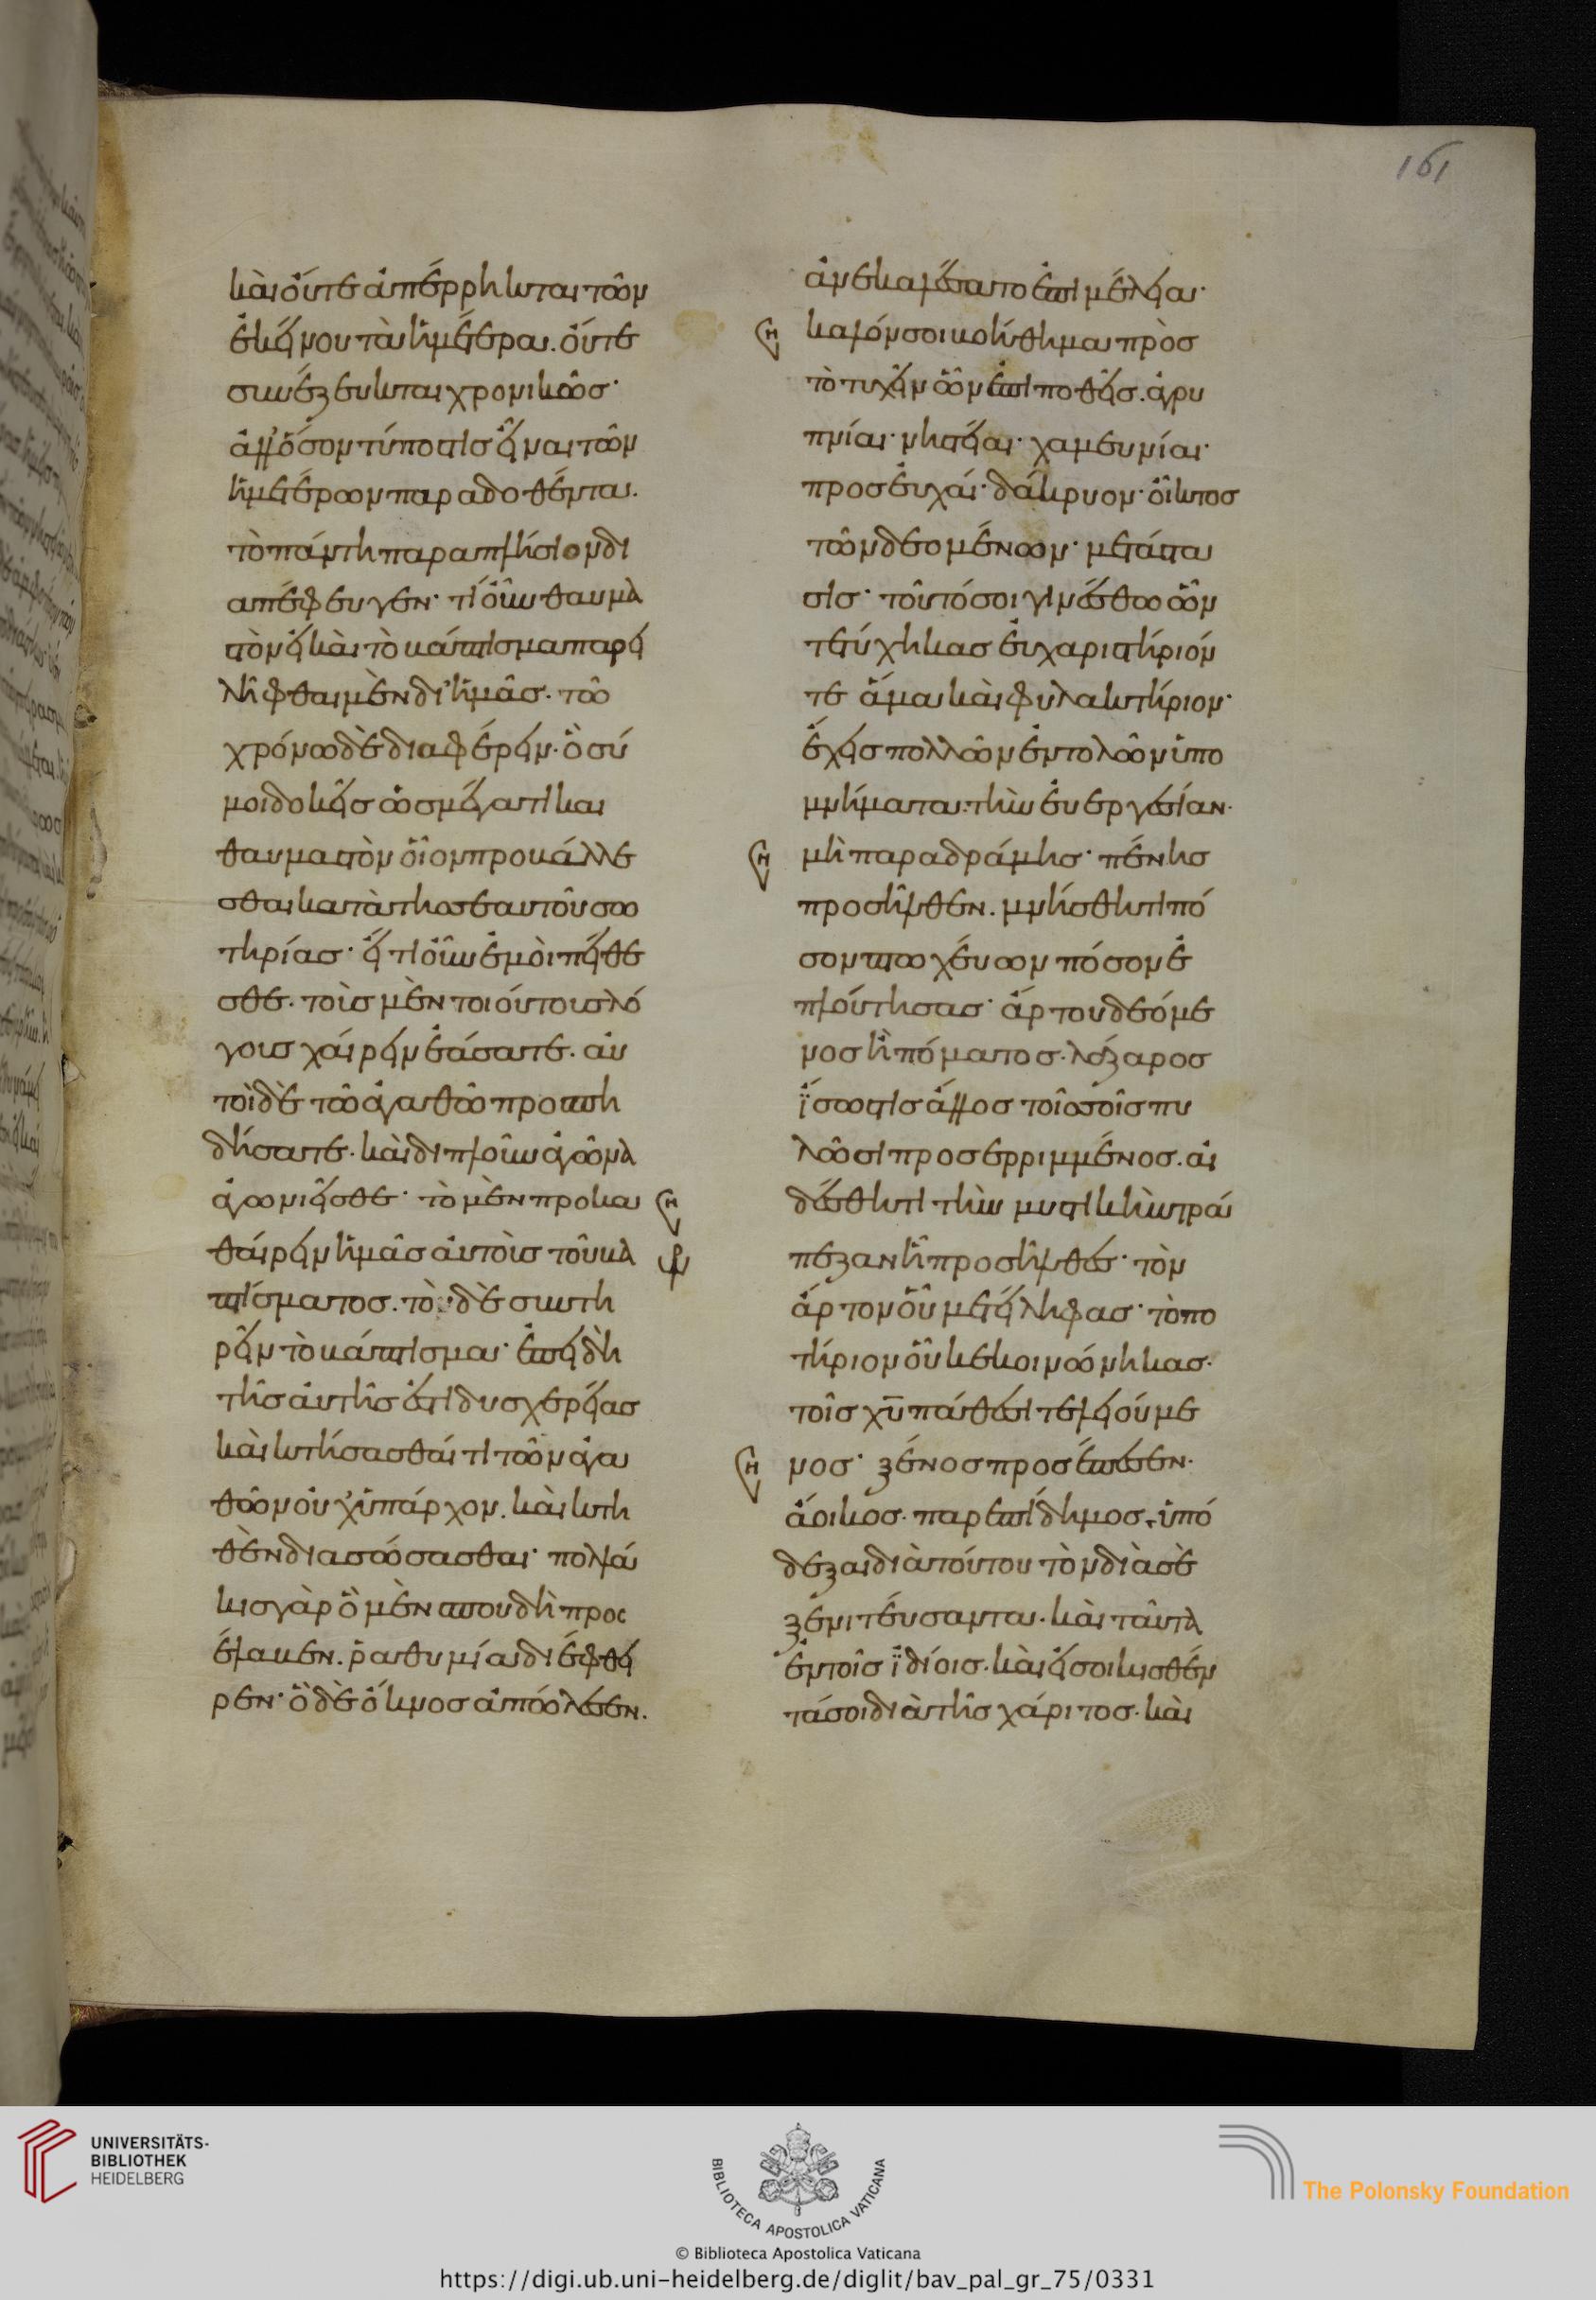 καὶ οὔτε ἀπέρρηκται τῶν
ἐκείνου τὰ ἡμέτερα. οὔτε
συνέζευκται χρονικῶς·
ἀλλ' ὅσον τύπός τις εἶναι τῶν
ἡμετέρων παραδοθέντα.
τὸ πάντη παραπλήσιον δι
απέφευγεν· τί οὖν θαυμα
στὸν εἰ καὶ τὸ βάπτισμα παρει
λῆφθαι μὲν δι' ἡμᾶς. τῶ
χρόνω δὲ διαφέρειν· ὃ σύ
μοι δοκεῖς ὡς μέγα τι και
θαυμαστὸν οἷον προβάλλε
σθαι κατὰ τῆς σεαυτοῦ σω
τηρίας· εἴ τι οὖν ἐμοὶ πείθε
σθε. τοῖς μὲν τοιούτοις λό
γοις χαίρειν ἐάσατε. αὐ
τοὶ δὲ τῶ ἀγαθῶ προσπη
δήσατε. καὶ διπλοῦν ἀγῶνα
ἀγωνιεῖσθε· τὸ μὲν προκα
θαίρειν ἡμᾶς αὐτοὺς τοῦ βα
πτίσματος. τὸ δὲ συντη
ρεῖν τὸ βάπτισμα· ἐπειδὴ
τῆς αὐτῆς ἐστι δυσχερείας
καὶ κτήσασθαί τι τῶν ἀγα
θῶν οὐχ ὑπάρχον. καὶ κτη
θὲν διασώσασθαι· πολλά
κις γὰρ ὃ μὲν σπουδὴ προς
έλαβεν. ῥαθυμία διέφθει
ρεν· ὃ δὲ ὄκνος ἀπώλεσεν.
161
ἀνεκαλέσατο ἐπιμέλεια·
καλόν σοι βοήθημα πρὸς
τὸ τυχεῖν ὧν ἐπιποθεῖς. ἀγρυ
πνίαι· νηστεῖαι· χαμευνίαι·
προσευχαί· δάκρυον· οἶκτος
τῶν δεομένων· μετάδο
σις· ταῦτά σοι γινέσθω ὧν
τετύχηκας εὐχαριστήριόν
τε ἅμα καὶ φυλακτήριον·
ἔχεις πολλῶν ἐντολῶν ὑπο
μνήματα· τὴν εὐεργεσίαν·
μὴ παραδράμης· πένης
προσῆλθεν. μνήσθητι πό
σον πτωχεύων πόσον ἐ
πλούτησας· ἄρτου δεόμε
νος ἢ πόματος. λάζαρος
ἴσως τις ἄλλος τοῖς σοῖς πυ
λῶσι προσερριμμένος. αἰ
δέσθητι τὴν μυστικὴν τρά
πεζαν ἧ προσῆλθες· τὸν
ἄρτον οὗ μετείληφας· τὸ πο
τήριον οὗ κεκοινώνηκας.
τοῖς χυ πάθεσι τελειούμε
νος· ξένος προσέπεσεν.
ἄοικος. παρεπίδημος. ὑπό
δεξαι διὰ τούτου τὸν διὰ σὲ
ξενιτεύσαντα. καὶ ταῦτα
ἐν τοῖς ἰδίοις. καὶ εἰσοικισθέν
τα σοι διὰ τῆς χάριτος. καὶ
UNIVERSITÄTS-
BIBLIOTHEK
HEIDELBERG
BIBLIOTECA APOSTOLICA VATICANA
The Polonsky Foundation
© Biblioteca Apostolica Vaticana
https://digi.ub.uni-heidelberg.de/diglit/bav_pal_gr_75/0331